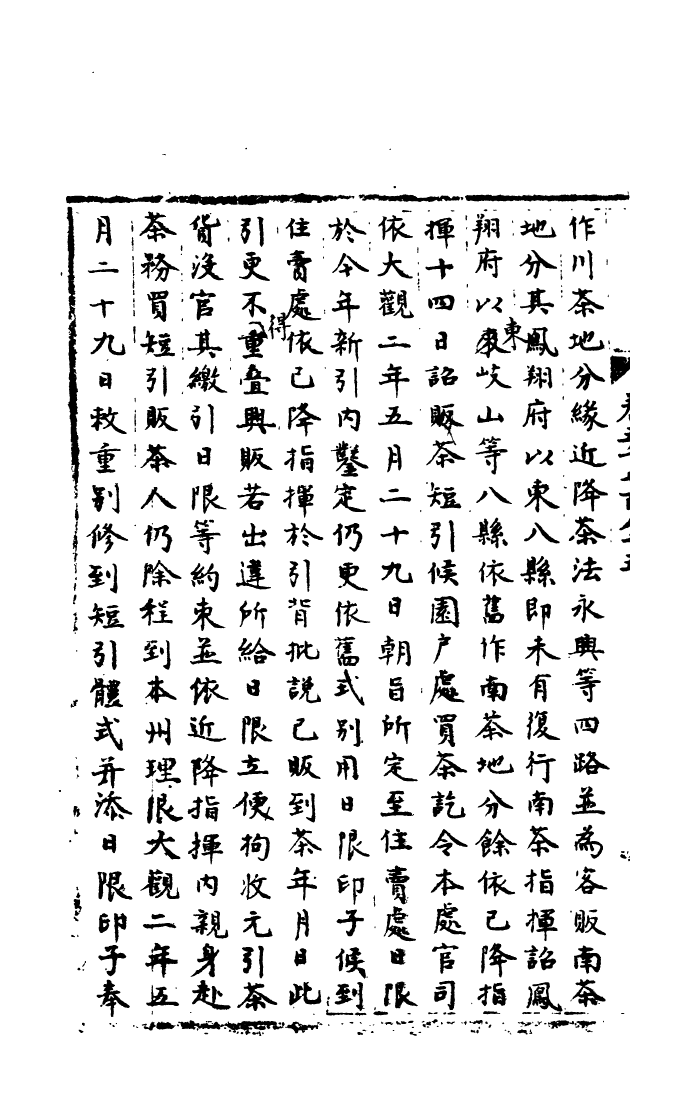 作川茶地分緣近降茶法永興等四路並為客販南茶
地分其鳳翔府以東八縣即未有復行南茶指揮詔鳳
翔府以東岐山等八縣依舊作南茶地分餘依已降指
揮十四日詔販茶短引候園戶處買茶訖令本處官司
依大觀二年五月二十九日朝旨所定至住賣處日限
於今年新引內鑿定仍更依舊式別用日限印子候到
住賣處依已降指揮於引背批說已販到茶年月日此
引更不得重疊興販若出違所給日限立便拘收元引茶
貨沒官其繳引日限等約束並依近降指揮內親身赴
茶務買短引販茶人仍除程到本州理限大觀二年五
月二十九日敕重別修到短引體式并添日限印子奉